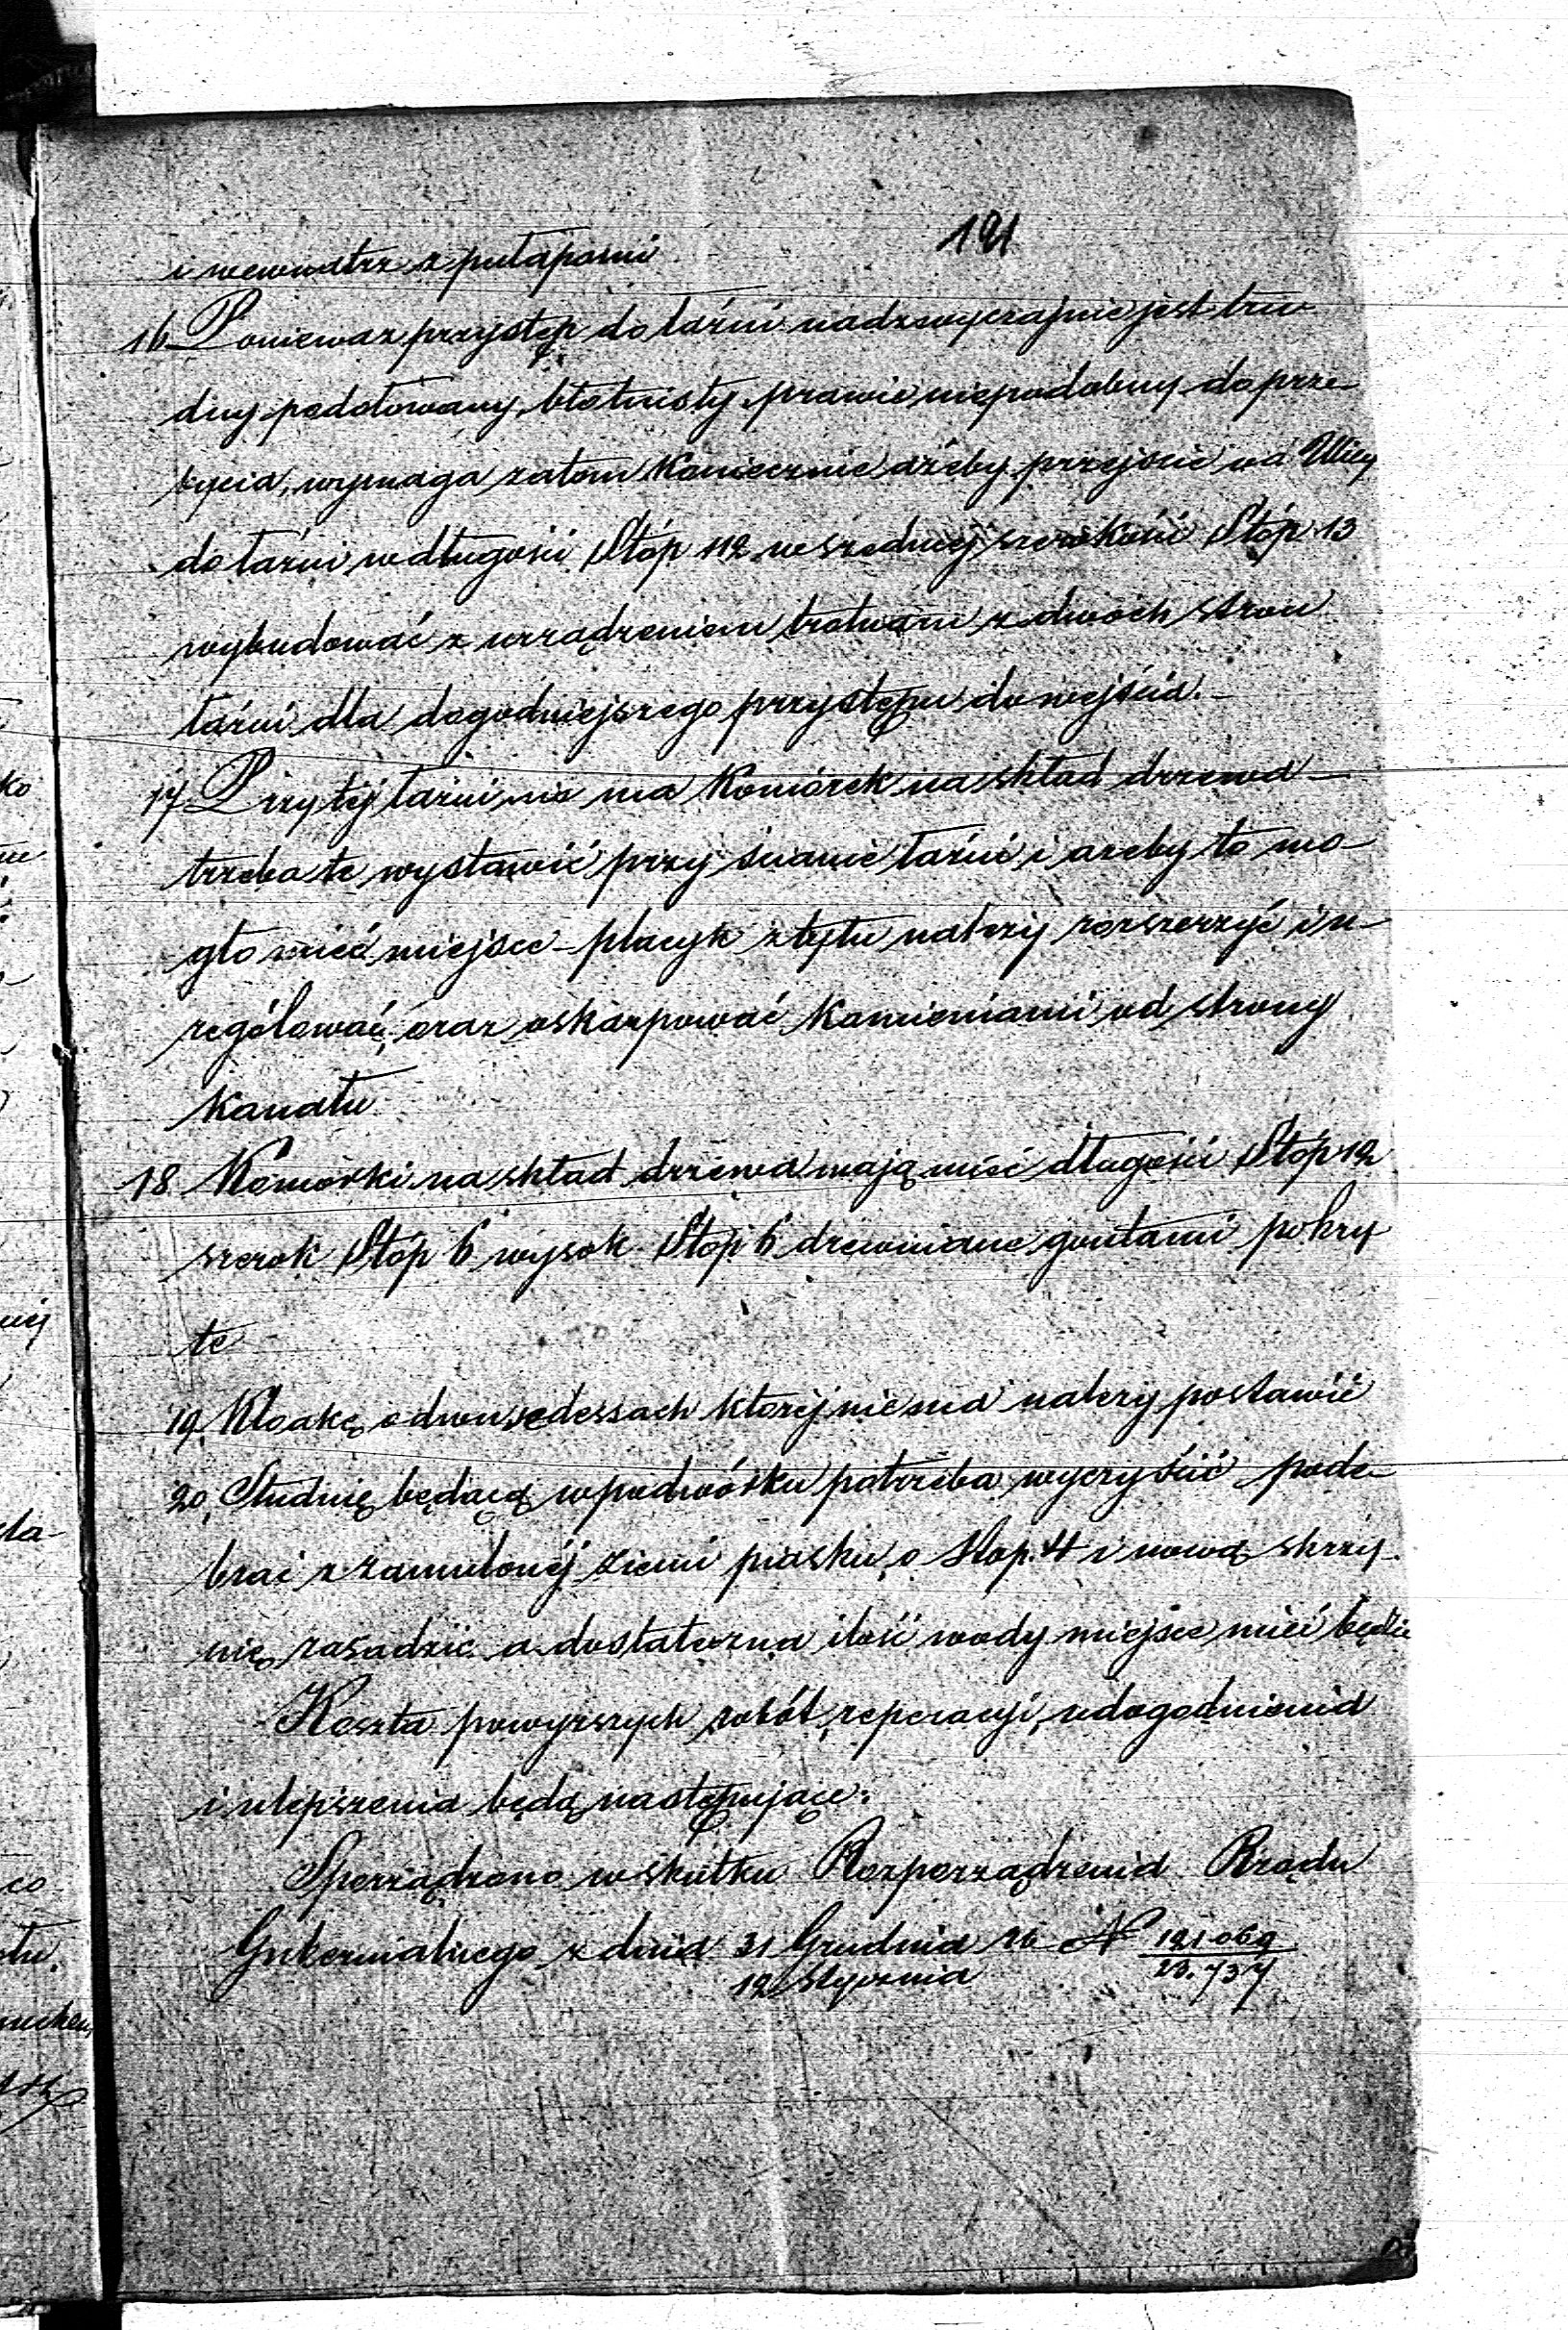 191
i wewnątrz z pułapami
16. Ponieważ przystęp do łaźni nadzwyczajnie jest tru
dny podołowany, błotnisty, prawie niepodobny do prze-
bycia, wymaga zatem koniecznie ażeby przejście od Ulicy
do łaźni w długości Stóp 112 w średniej szerokości Stóp 13
wybudować z urządzeniem trotuaru z dwóch stron
łaźni dla dogodniejszego przystępu do wejścia.-
17 Przy tej łaźni nie ma Komórek na skład drzewa -
trzeba te wystawić przy ścianie łaźni i ażeby to mo-
gło mieć miejsce - placyk z tyłu należy rozszerzyć i u-
rególować, oraz oskarpować kamieniami od strony
kanału
18 Komórki na skład drzewa mają mieć długości Stóp 12
szerok Stóp 6 wysok. Stóp 6 drewniane gontami pokry
te
19. Kloakę o dwu sedessach której niema należy postawić
20, Studnię będącą w podwórku potrzeba wyczyścić pode-
brać z zamulonéj ziemi piasku, o Stop. 4 i nową skrzy-
nię zasadzić a dostateczna ilość wody miejsce mieć będzie
Koszta powyższych robót, reperacyi, udogodnienia
i ulepszenia będą następujące:
Sporządzono w skutku Rozporządzenia Rządu
Gubernialnego z dnia 31 Grudnia 26 N 121069
12 Stycznia 23.737